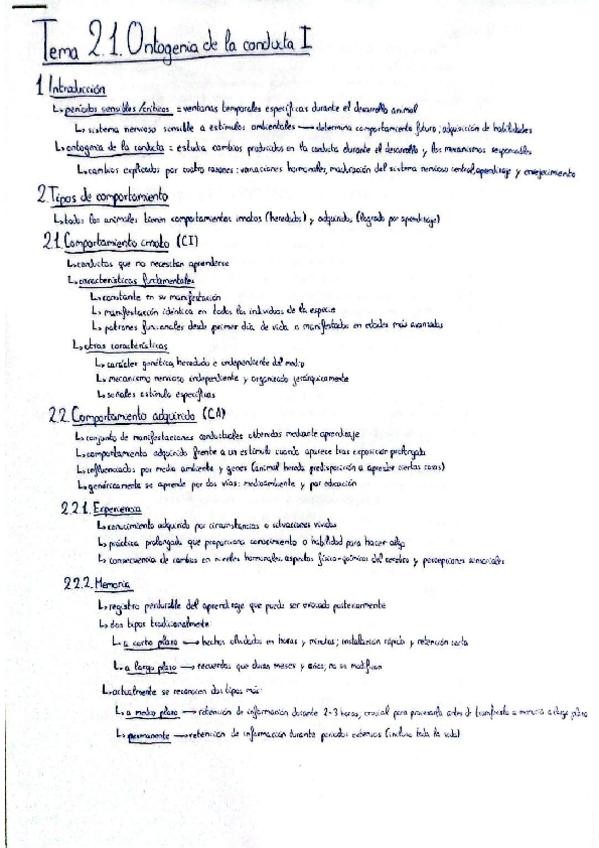 Tema 2.1. Ontogenia de la conducta I
1. Introducción
↳ periodos sensibles/críticos = ventanas temporales específicas durante el desarrollo animal
↳ sistema nervioso sensible a estímulos ambientales → determina comportamiento futuro; adquisición de habilidades
↳ ontogenia de la conducta = estudia cambios producidos en la conducta durante el desarrollo y los mecanismos responsables
↳ cambios explicados por cuatro razones: variaciones hormonales, maduración del sistema nervioso central, aprendizaje y envejecimiento
2. Tipos de comportamiento
↳ todos los animales tienen comportamientos innatos (heredados) y adquiridos (logrado por aprendizaje)
2.1. Comportamiento innato (CI)
↳ conductas que no necesitan aprenderse
↳ características fundamentales
↳ constante en su manifestación
↳ manifestación idéntica en todos los individuos de la especie
↳ patrones funcionales desde primer día de vida o manifestados en edades más avanzadas
↳ otras características
↳ carácter genético, heredado e independiente del medio
↳ mecanismo nervioso independiente y organizado jerárquicamente
↳ señales estímulo específicas
2.2. Comportamiento adquirido (CA)
↳ conjunto de manifestaciones conductuales obtenidas mediante aprendizaje
↳ comportamiento adquirido frente a un estímulo cuando aparece tras exposición prolongada
↳ influenciados por medio ambiente y genes (animal hereda predisposición a aprender ciertas cosas)
↳ genéricamente se aprende por dos vías: medioambiente y por educación
2.2.1. Experiencia
↳ conocimiento adquirido por circunstancias o situaciones vividas
↳ práctica prolongada que proporciona conocimiento o habilidad para hacer algo
↳ consecuencia de cambios en niveles hormonales, aspectos físico-químicos del cerebro y percepciones sensoriales
2.2.2. Memoria
↳ registro perdurable del aprendizaje que puede ser evocado posteriormente
↳ dos tipos tradicionalmente:
↳ a corto plazo → hechos olvidados en horas y minutos; instalación rápida y retención corta
↳ a largo plazo → recuerdos que duran meses y años; no se modifican
↳ actualmente se reconocen dos tipos más:
↳ a medio plazo → retención de información durante 2-3 horas, crucial para procesarla antes de transferirla a memoria a largo plazo
↳ permanente → retención de información durante periodos extensos (incluso toda la vida)